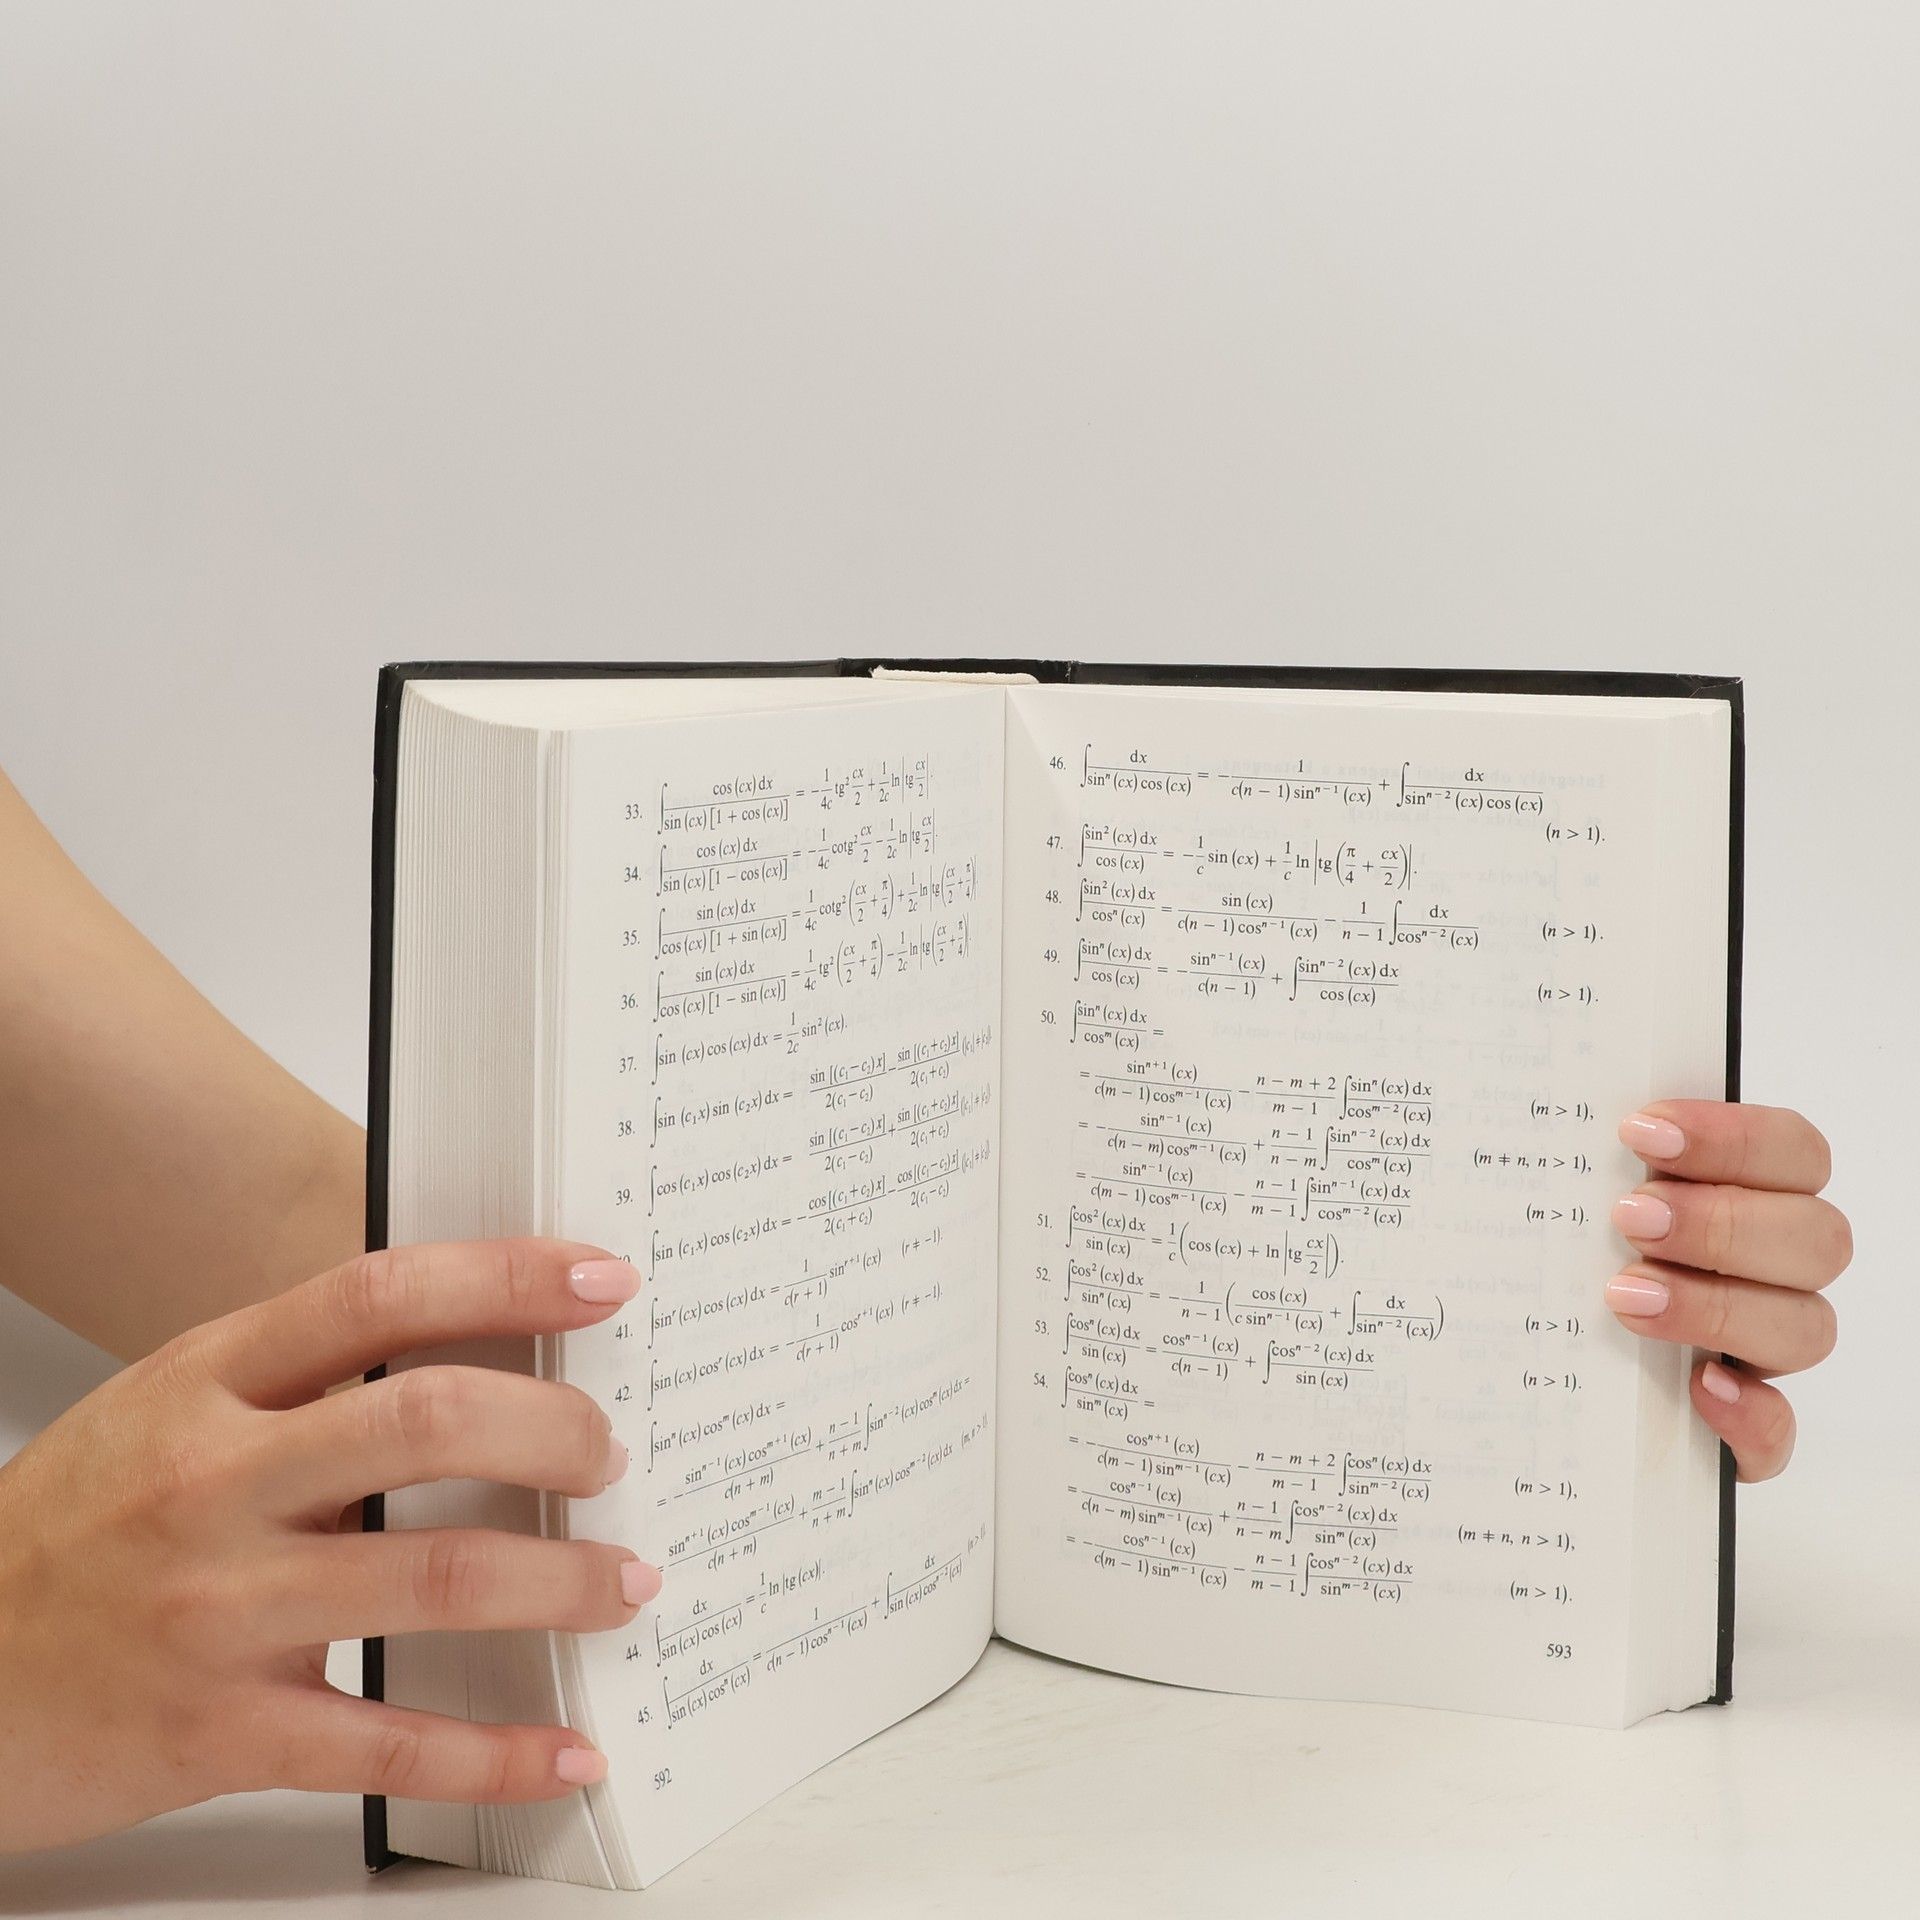 33. ∫ cos (cx) dx / sin (cx) [1 + cos (cx)] = − 1/4c tg² cx/2 + 1/2c ln |tg cx/2|.
34. ∫ cos (cx) dx / sin (cx) [1 − cos (cx)] = − 1/4c cotg² cx/2 − 1/2c ln |tg cx/2|.
35. ∫ sin (cx) dx / cos (cx) [1 + sin (cx)] = 1/4c cotg² (cx/2 + π/4) + 1/2c ln |tg (cx/2 + π/4)|.
36. ∫ sin (cx) dx / cos (cx) [1 − sin (cx)] = 1/4c tg² (cx/2 + π/4) − 1/2c ln |tg (cx/2 + π/4)|.
37. ∫ sin (cx) cos (cx) dx = 1/2c sin² (cx).
38. ∫ sin (c₁x) sin (c₂x) dx = sin [(c₁ − c₂) x] / 2(c₁ − c₂) − sin [(c₁ + c₂) x] / 2(c₁ + c₂) (|c₁| ≠ |c₂|).
39. ∫ cos (c₁x) cos (c₂x) dx = sin [(c₁ − c₂) x] / 2(c₁ − c₂) + sin [(c₁ + c₂) x] / 2(c₁ + c₂) (|c₁| ≠ |c₂|).
∫ sin (c₁x) cos (c₂x) dx = − cos [(c₁ + c₂) x] / 2(c₁ + c₂) − cos [(c₁ − c₂) x] / 2(c₁ − c₂) (|c₁| ≠ |c₂|).
41. ∫ sinʳ (cx) cos (cx) dx = 1 / c(r + 1) sinʳ⁺¹ (cx) (r ≠ −1).
42. ∫ sin (cx) cosʳ (cx) dx = − 1 / c(r + 1) cosʳ⁺¹ (cx) (r ≠ −1).
∫ sinⁿ (cx) cosᵐ (cx) dx =
= − sinⁿ⁻¹ (cx) cosᵐ⁺¹ (cx) / c(n + m) + n − 1 / n + m ∫ sinⁿ⁻² (cx) cosᵐ (cx) dx =
= sinⁿ⁺¹ (cx) cosᵐ⁻¹ (cx) / c(n + m) + m − 1 / n + m ∫ sinⁿ (cx) cosᵐ⁻² (cx) dx (m, n > 1).
44. ∫ dx / sin (cx) cos (cx) = 1/c ln |tg (cx)|.
45. ∫ dx / sin (cx) cosⁿ (cx) = 1 / c(n − 1) cosⁿ⁻¹ (cx) + ∫ dx / sin (cx) cosⁿ⁻² (cx) (n > 1).
592
46. ∫ dx / sinⁿ (cx) cos (cx) = − 1 / c(n − 1) sinⁿ⁻¹ (cx) + ∫ dx / sinⁿ⁻² (cx) cos (cx)
(n > 1).
47. ∫ sin² (cx) dx / cos (cx) = − 1/c sin (cx) + 1/c ln |tg (π/4 + cx/2)|.
48. ∫ sin² (cx) dx / cosⁿ (cx) = sin (cx) / c(n − 1) cosⁿ⁻¹ (cx) − 1 / n − 1 ∫ dx / cosⁿ⁻² (cx) (n > 1).
49. ∫ sinⁿ (cx) dx / cos (cx) = − sinⁿ⁻¹ (cx) / c(n − 1) + ∫ sinⁿ⁻² (cx) dx / cos (cx) (n > 1).
50. ∫ sinⁿ (cx) dx / cosᵐ (cx) =
= sinⁿ⁺¹ (cx) / c(m − 1) cosᵐ⁻¹ (cx) − n − m + 2 / m − 1 ∫ sinⁿ (cx) dx / cosᵐ⁻² (cx) (m > 1),
= − sinⁿ⁻¹ (cx) / c(n − m) cosᵐ⁻¹ (cx) + n − 1 / n − m ∫ sinⁿ⁻² (cx) dx / cosᵐ (cx) (m ≠ n, n > 1),
= sinⁿ⁻¹ (cx) / c(m − 1) cosᵐ⁻¹ (cx) − n − 1 / m − 1 ∫ sinⁿ⁻¹ (cx) dx / cosᵐ⁻² (cx) (m > 1).
51. ∫ cos² (cx) dx / sin (cx) = 1/c (cos (cx) + ln |tg cx/2|).
52. ∫ cos² (cx) dx / sinⁿ (cx) = − 1 / n − 1 (cos (cx) / c sinⁿ⁻¹ (cx) + ∫ dx / sinⁿ⁻² (cx)) (n > 1).
53. ∫ cosⁿ (cx) dx / sin (cx) = cosⁿ⁻¹ (cx) / c(n − 1) + ∫ cosⁿ⁻² (cx) dx / sin (cx) (n > 1).
54. ∫ cosⁿ (cx) dx / sinᵐ (cx) =
= − cosⁿ⁺¹ (cx) / c(m − 1) sinᵐ⁻¹ (cx) − n − m + 2 / m − 1 ∫ cosⁿ (cx) dx / sinᵐ⁻² (cx) (m > 1),
= cosⁿ⁻¹ (cx) / c(n − m) sinᵐ⁻¹ (cx) + n − 1 / n − m ∫ cosⁿ⁻² (cx) dx / sinᵐ (cx) (m ≠ n, n > 1),
= − cosⁿ⁻¹ (cx) / c(m − 1) sinᵐ⁻¹ (cx) − n − 1 / m − 1 ∫ cosⁿ⁻² (cx) dx / sinᵐ⁻² (cx) (m > 1).
593